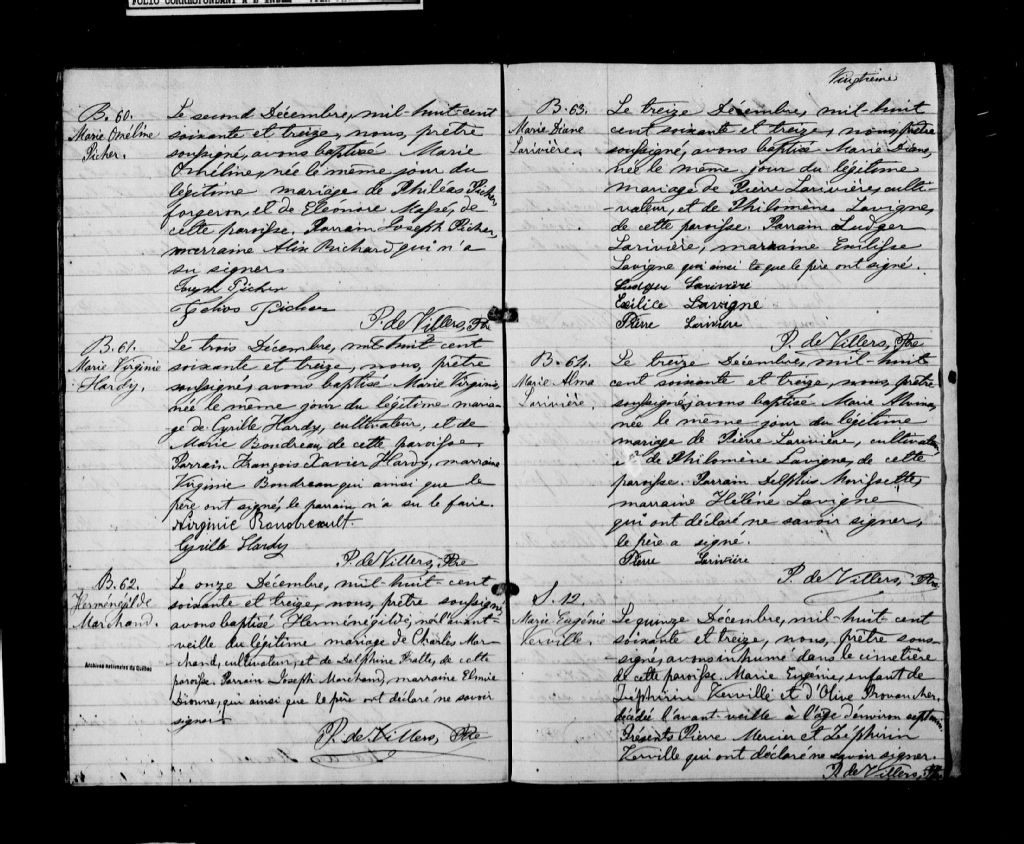 FOLIO CORRESPONDANT A L'INDEX
B. 60.
Marie Orséline
Picher.
Le second Décembre, mil-huit-cent
soixante et treize, nous, prêtre
soussigné, avons baptisé Marie
née le même jour du
légitime mariage de Philéas Picher,
forgeron, et de Eléonore Massé, de
cette paroisse, Parrain Joseph Picher,
marraine Alix Richard qui n'a
su signer.
Joseph Picher
Picher
P. de Villers, Ptre
B. 61.
Marie Virginie
Hardy.
Le trois Décembre, mil-huit-cent
soixante et treize, nous, prêtre
soussigné, avons baptisé Marie Virginie,
née le même jour du légitime maria-
ge de Cyrille Hardy, cultivateur, et de
Marie Boudreau de cette paroisse.
Parrain François Xavier Hardy, marraine
Virginie Boudreau qui ainsi que le
père ont signé, le parrain n'a su le faire.
Virginie
Cyrille Hardy
P. de Villers, Ptre
B. 62.
Herménégilde
Marchand.
Le onze Décembre, mil-huit-cent
soixante et treize, nous, prêtre soussigné,
avons baptisé Herménégilde, né l'avant-
veille du légitime mariage de Charles Mar-
chand, cultivateur, et de Delphine de cette
paroisse. Parrain Joseph Marchand, marraine Elmire
Dionne, qui ainsi que le père ont déclaré ne savoir
signer.
P. de Villers, Ptre
Archives nationales du Québec
Vingtième
B. 63.
Marie Diane
Larivière.
Le treize Décembre, mil-huit
cent soixante et treize, nous, prêtre
soussigné, avons baptisé Marie Diane,
née le même jour du légitime
mariage de Pierre Larivière, culti-
-vateur, et de Philomène Lavigne,
de cette paroisse. Parrain Ludger
Larivière, marraine Exilisse
Lavigne qui ainsi que le père ont signé.
Ludger Larivière
Exilice Lavigne
Pierre Larivière
P. de Villers, Ptre
B. 64.
Marie Alma
Larivière.
Le treize Décembre, mil-huit
cent soixante et treize, nous, prêtre
soussigné, avons baptisé Marie
née le même jour du légitime
mariage de Pierre Larivière, cultivateur,
et de Philomène Lavigne, de cette
paroisse. Parrain Delphis Morissette,
marraine Hélène Lavigne
qui ont déclaré ne savoir signer,
le père a signé.
Pierre Larivière
P. de Villers, Ptre
S. 12.
Marie Eugénie
Verville.
Le quinze Décembre, mil-huit cent
soixante et treize, nous, prêtre sous-
-signé, avons inhumé dans le cimetière
de cette paroisse Marie Eugénie, enfant de
Zéphirin Verville et d'Olive Provencher,
décédée l'avant-veille à l'âge d'environ sept mois.
Présents Pierre Mercier et Zéphirin
Verville qui ont déclaré ne savoir signer.
P. de Villers, Ptre